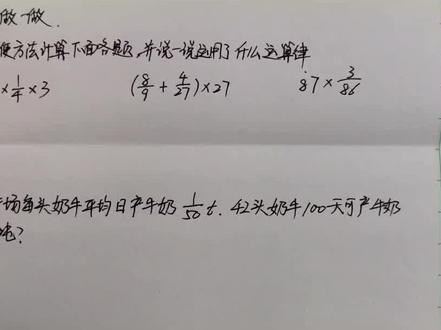 做一做.
便方法计算下面各题,并说一说运用了什么运算律
×1/4×3 (8/9+4/27)×27 87×3/86
场每头奶牛平均日产牛奶1/50t.42头奶牛100天可产牛奶
吨?